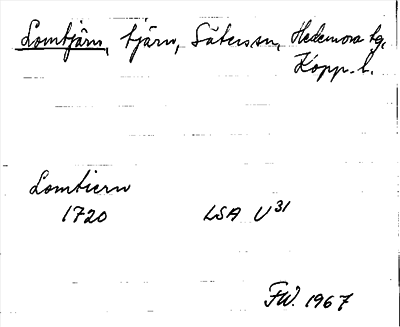 Lomtjärn, tjärn, Säters sn, Hedemora tg,
Kopp. l.
Lomtiern
1720 LSA U31
FW. 1967